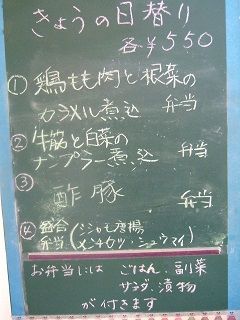 きょうの日替り
各¥550
① 鶏もも肉と根菜の
カラメル煮込 弁当
② 牛筋と白菜の
ナンプラー煮込 弁当
③
酢豚 弁当
④ 盛合 (ジャンボ唐揚
弁当 メンチカツ・シュウマイ)
お弁当には ごはん、副菜
サラダ、漬物
が付きます